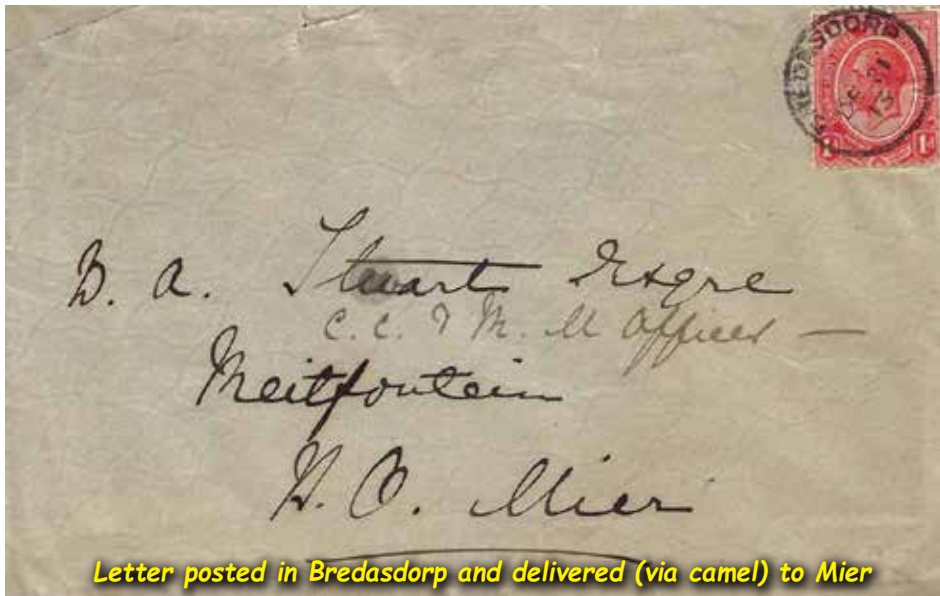 BREDASDORP
DE 31
13
1d 1d
D. A. Stuart Esqre
C. C. & M. M Officer —
Rietfontein
P. O. Mier
Letter posted in Bredasdorp and delivered (via camel) to Mier